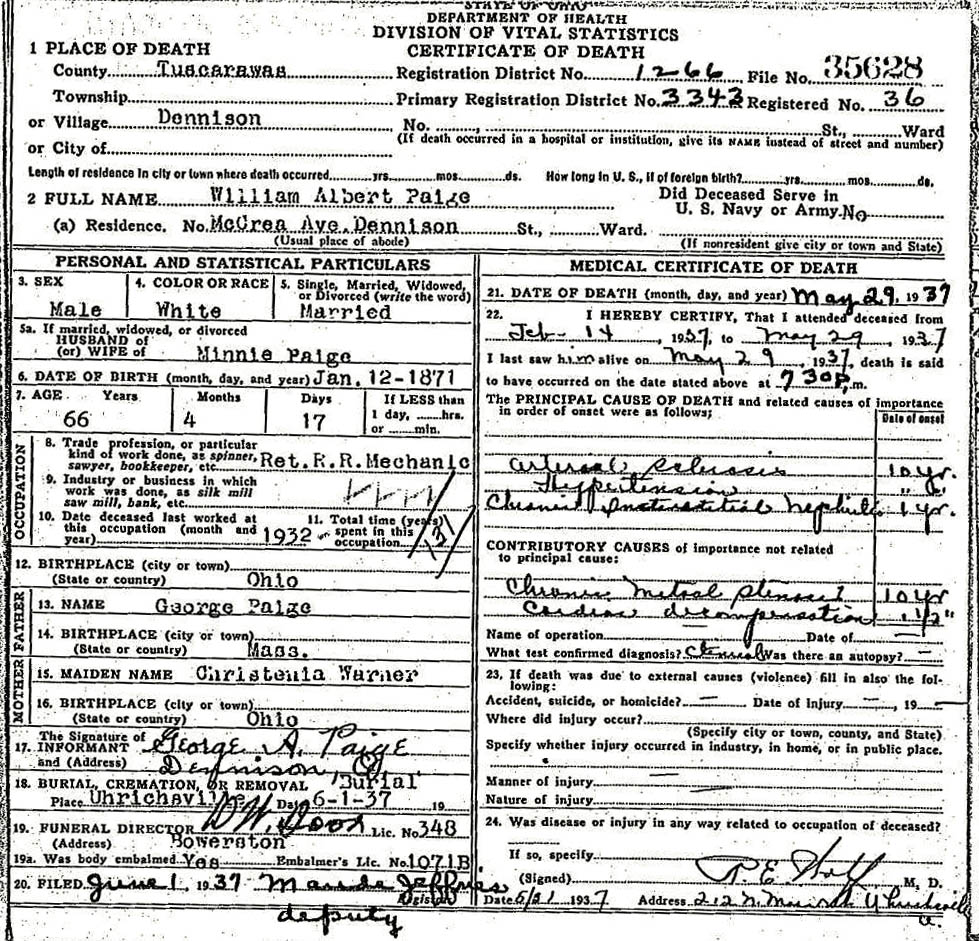 STATE OF OHIO
DEPARTMENT OF HEALTH
DIVISION OF VITAL STATISTICS
CERTIFICATE OF DEATH
1 PLACE OF DEATH
County Tuscarawas Registration District No. 1266 File No. 35628
Township Primary Registration District No. 3343 Registered No. 36
or Village Dennison No. St., Ward
(If death occurred in a hospital or institution, give its NAME instead of street and number)
or City of
Length of residence in city or town where death occurred yrs. mos. ds. How long in U. S., if of foreign birth? yrs. mos. ds.
2 FULL NAME William Albert Paige Did Deceased Serve in U. S. Navy or Army No
(a) Residence. No. McCrea Ave. Dennison St., Ward.
(Usual place of abode) (If nonresident give city or town and State)
PERSONAL AND STATISTICAL PARTICULARS
3. SEX Male
4. COLOR OR RACE White
5. Single, Married, Widowed, or Divorced (write the word) Married
5a. If married, widowed, or divorced
HUSBAND of
(or) WIFE of Minnie Paige
6. DATE OF BIRTH (month, day, and year) Jan. 12-1871
7. AGE Years Months Days If LESS than
1 day, hrs.
or min.
66 4 17
OCCUPATION
8. Trade profession, or particular
kind of work done, as spinner,
sawyer, bookkeeper, etc. Ret. R.R. Mechanic
9. Industry or business in which
work was done, as silk mill
saw mill, bank, etc.
10. Date deceased last worked at
this occupation (month and
year) 1932
11. Total time (years)
spent in this
occupation 31
12. BIRTHPLACE (city or town)
(State or country) Ohio
FATHER
13. NAME George Paige
14. BIRTHPLACE (city or town)
(State or country) Mass.
MOTHER
15. MAIDEN NAME Christenia Warner
16. BIRTHPLACE (city or town)
(State or country) Ohio
The Signature of
17. INFORMANT George A. Paige
and (Address) Dennison O
18. BURIAL, CREMATION, OR REMOVAL Burial
Place Uhrichsville Date 6-1-37 19
19. FUNERAL DIRECTOR Lic. No 348
(Address) Bowerston
19a. Was body embalmed Yes Embalmer's Lic. No. 1071B
20. FILED June 1, 1937 Maude Jeffries
Registrar
deputy
MEDICAL CERTIFICATE OF DEATH
21. DATE OF DEATH (month, day, and year) May 29, 1937
22. I HEREBY CERTIFY, That I attended deceased from
Feb - 14, 1937, to May 29, 1937
I last saw him alive on May 29, 1937, death is said
to have occurred on the date stated above at 7 30 p.m.
The PRINCIPAL CAUSE OF DEATH and related causes of importance
in order of onset were as follows; Date of onset
Arterial Sclerosis 10 yr.
Hypertension "
Chronic Interstitial Nephritis 1 yr.
CONTRIBUTORY CAUSES of importance not related
to principal cause:
Chronic Mitral Stenosis 10 yr
Cardiac decompensation 1 1/2 "
Name of operation Date of —
What test confirmed diagnosis? Clinical Was there an autopsy? —
23. If death was due to external causes (violence) fill in also the fol-
lowing:
Accident, suicide, or homicide? — Date of injury —, 19 —
Where did injury occur?
(Specify city or town, county, and State)
Specify whether injury occurred in industry, in home, or in public place.
Manner of injury —
Nature of injury —
24. Was disease or injury in any way related to occupation of deceased?
If so, specify
(Signed) M. D.
Date 5/31 1937 Address 212 N. Main St Uhrichsville
O.